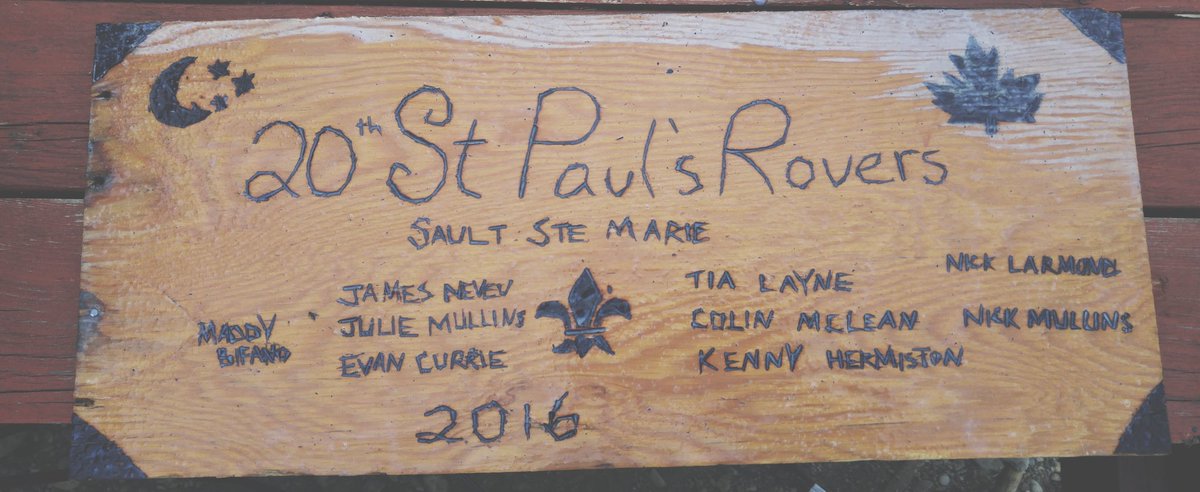 20th St Paul's Rovers
SAULT STE MARIE
MADDY
BIFANO
JAMES NEVEU
JULIE MULLINS
EVAN CURRIE
TIA LAYNE
COLIN MCLEAN
KENNY HERMISTON
NICK LARMOND
NICK MULLINS
2016